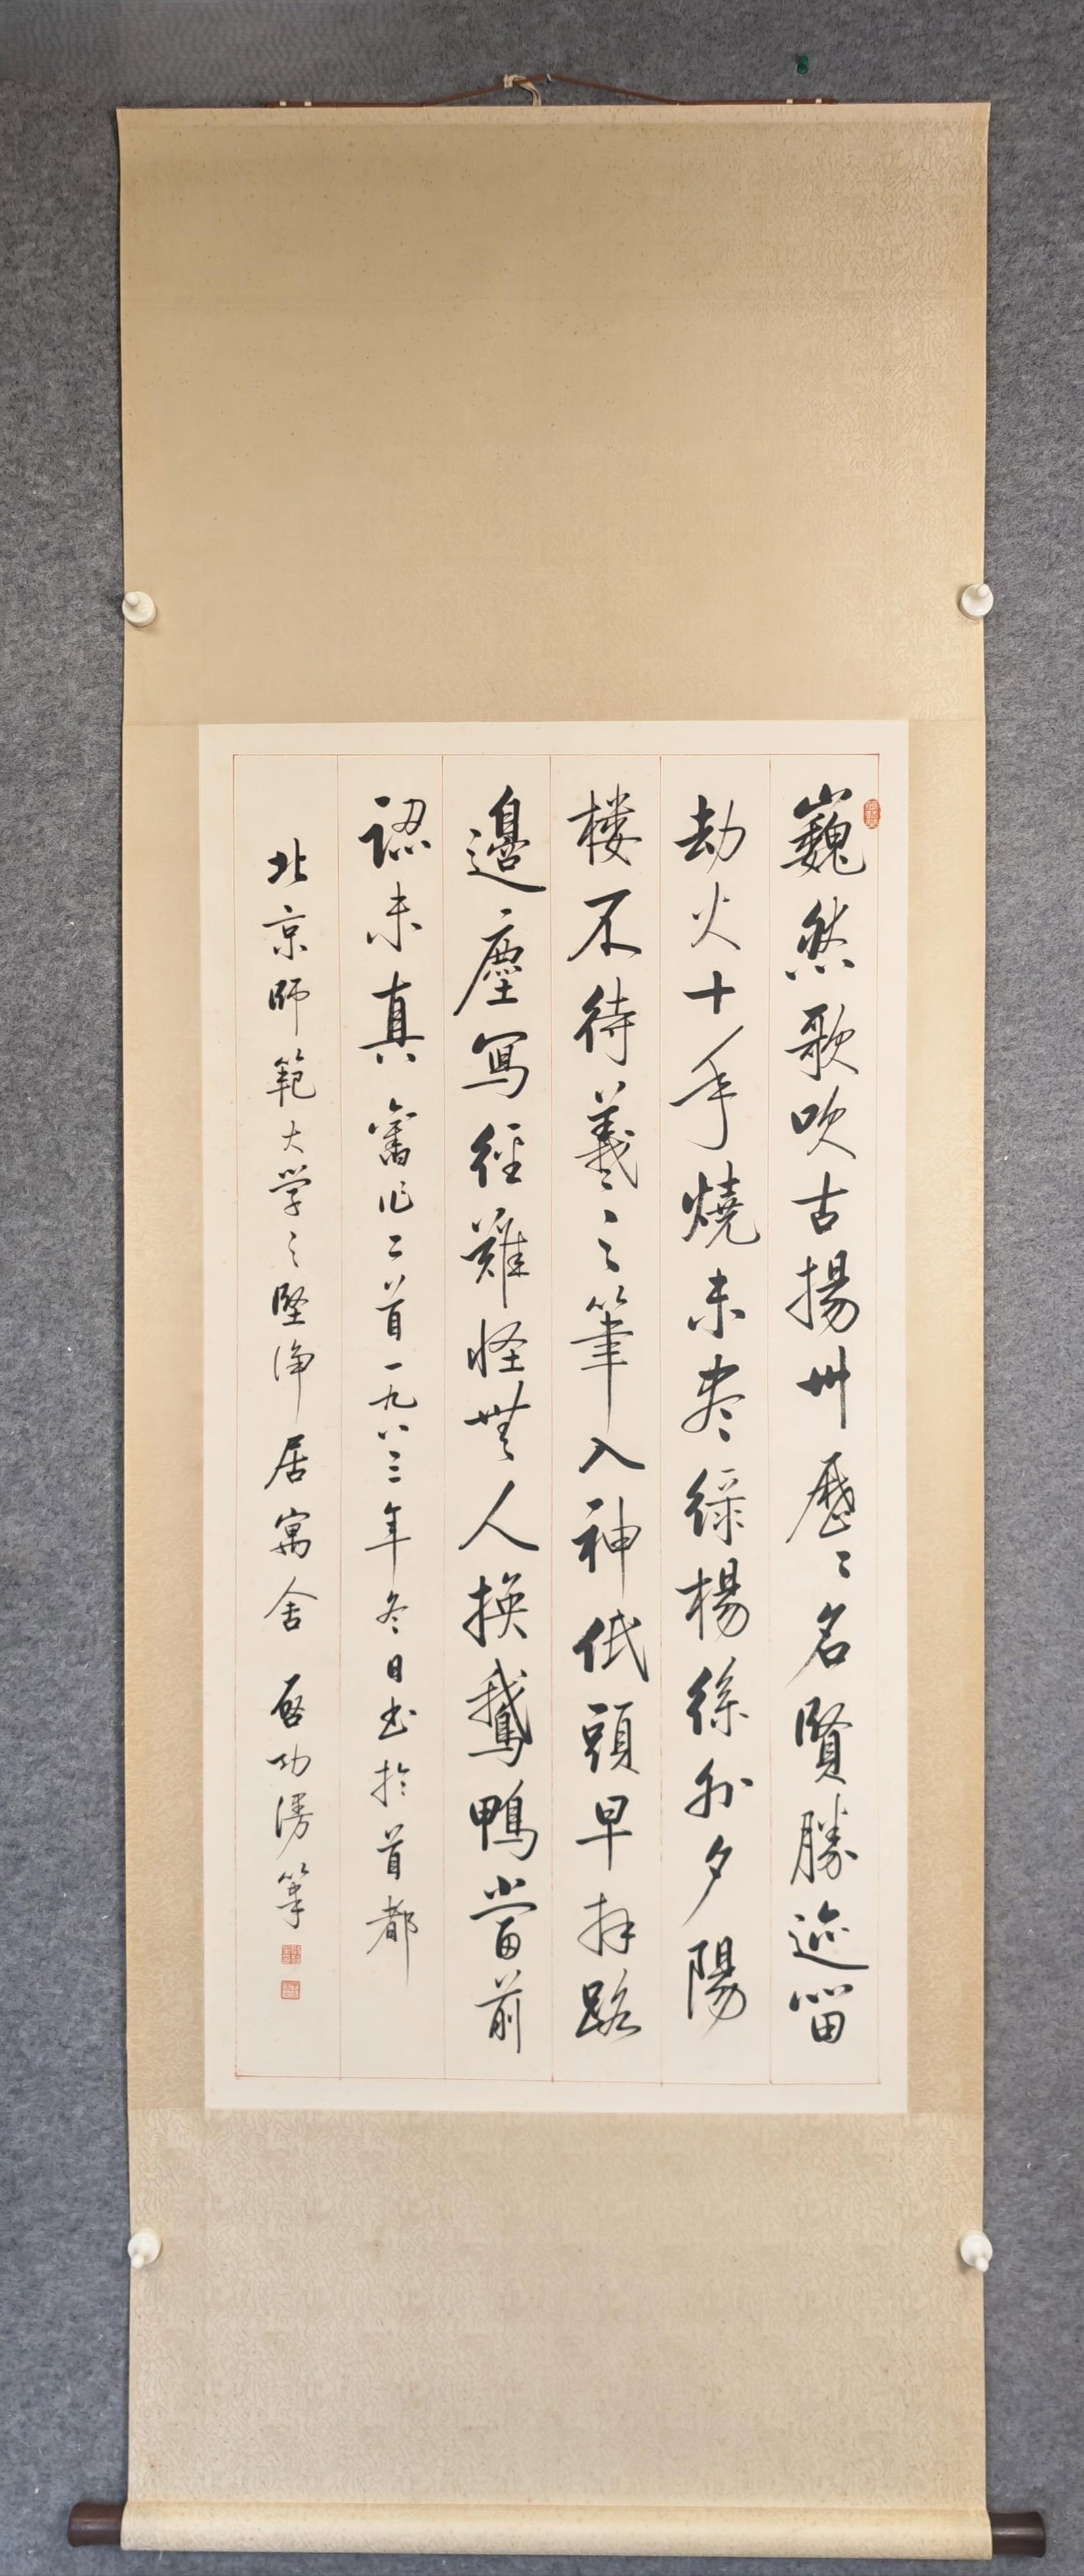 巍然歌吹古揚州歷〻名賢勝迹留
劫火十年燒未盡綠楊絲外夕陽
樓不待羲之筆入神低頭早拜路
邊塵寫經難怪無人換鵝鴨當前
認未真 舊作二首一九八三年冬日書於首都
北京師範大学之堅净居寓舍 啓功漫筆